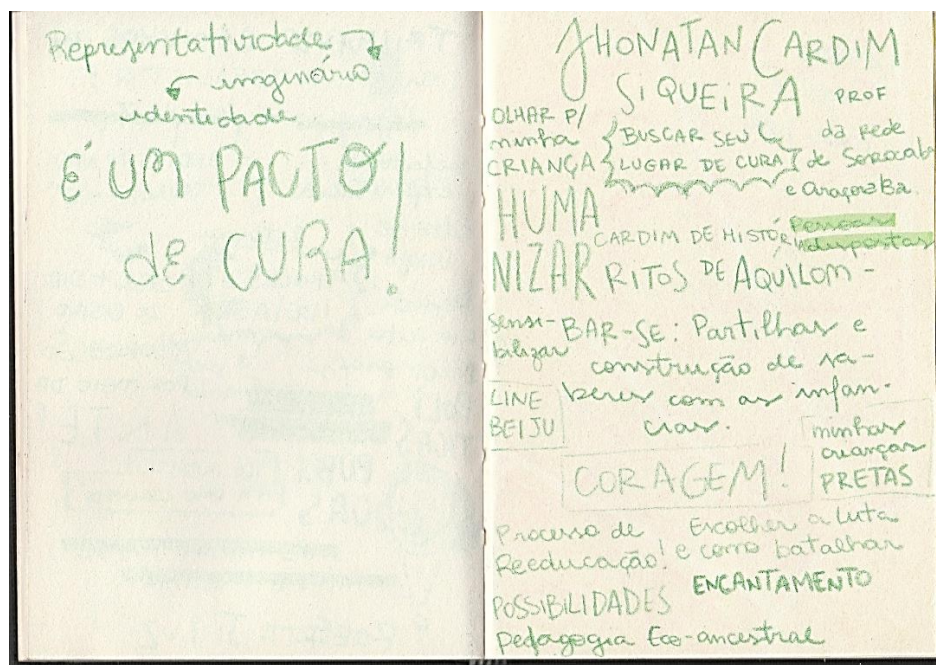 Representatividade
imaginário
identidade
É UM PACTO!
de CURA!
JHONATAN CARDIM
SIQUEIRA
PROF
da Rede
de Sorocaba
e Araçoiaba.
OLHAR P/
minha
CRIANÇA
BUSCAR SEU
LUGAR DE CURA
HUMA
NIZAR
CARDIM DE HISTÓRIA
Pessoas
dispostas
RITOS DE AQUILOM-
BAR-SE: Partilhas e
construção de sa-
beres com as infân-
cias.
sensi-
bilizar
LINE
BEIJU
CORAGEM!
minhas
crianças
PRETAS
Processo de
Reeducação!
Escolher a luta
e como batalhar
ENCANTAMENTO
POSSIBILIDADES
Pedagogia Eco-ancestral